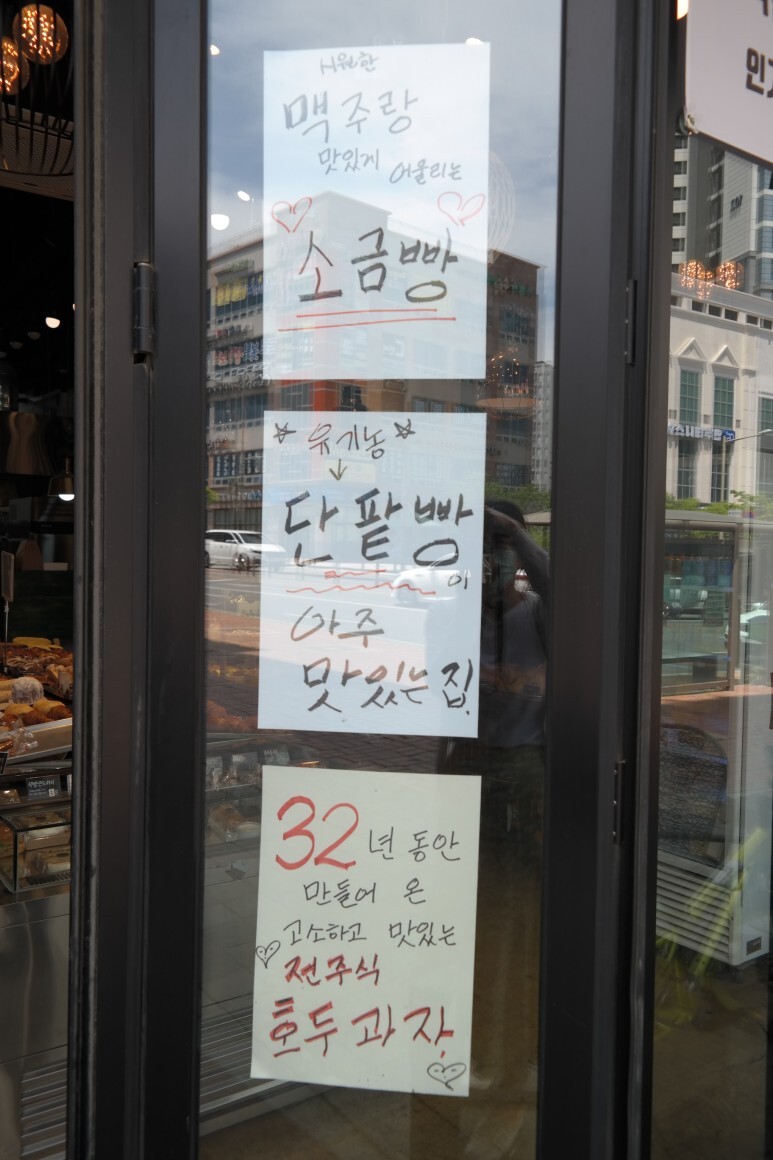 시원한
맥주랑
맛있게 어울리는
소금빵
유기농
단팥빵이
아주
맛있는 집.
32년 동안
만들어 온
고소하고 맛있는
전주식
호두과자.